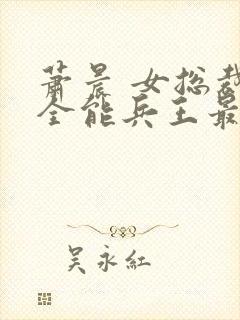 萧晨 女总裁
全能兵王最
吴永红